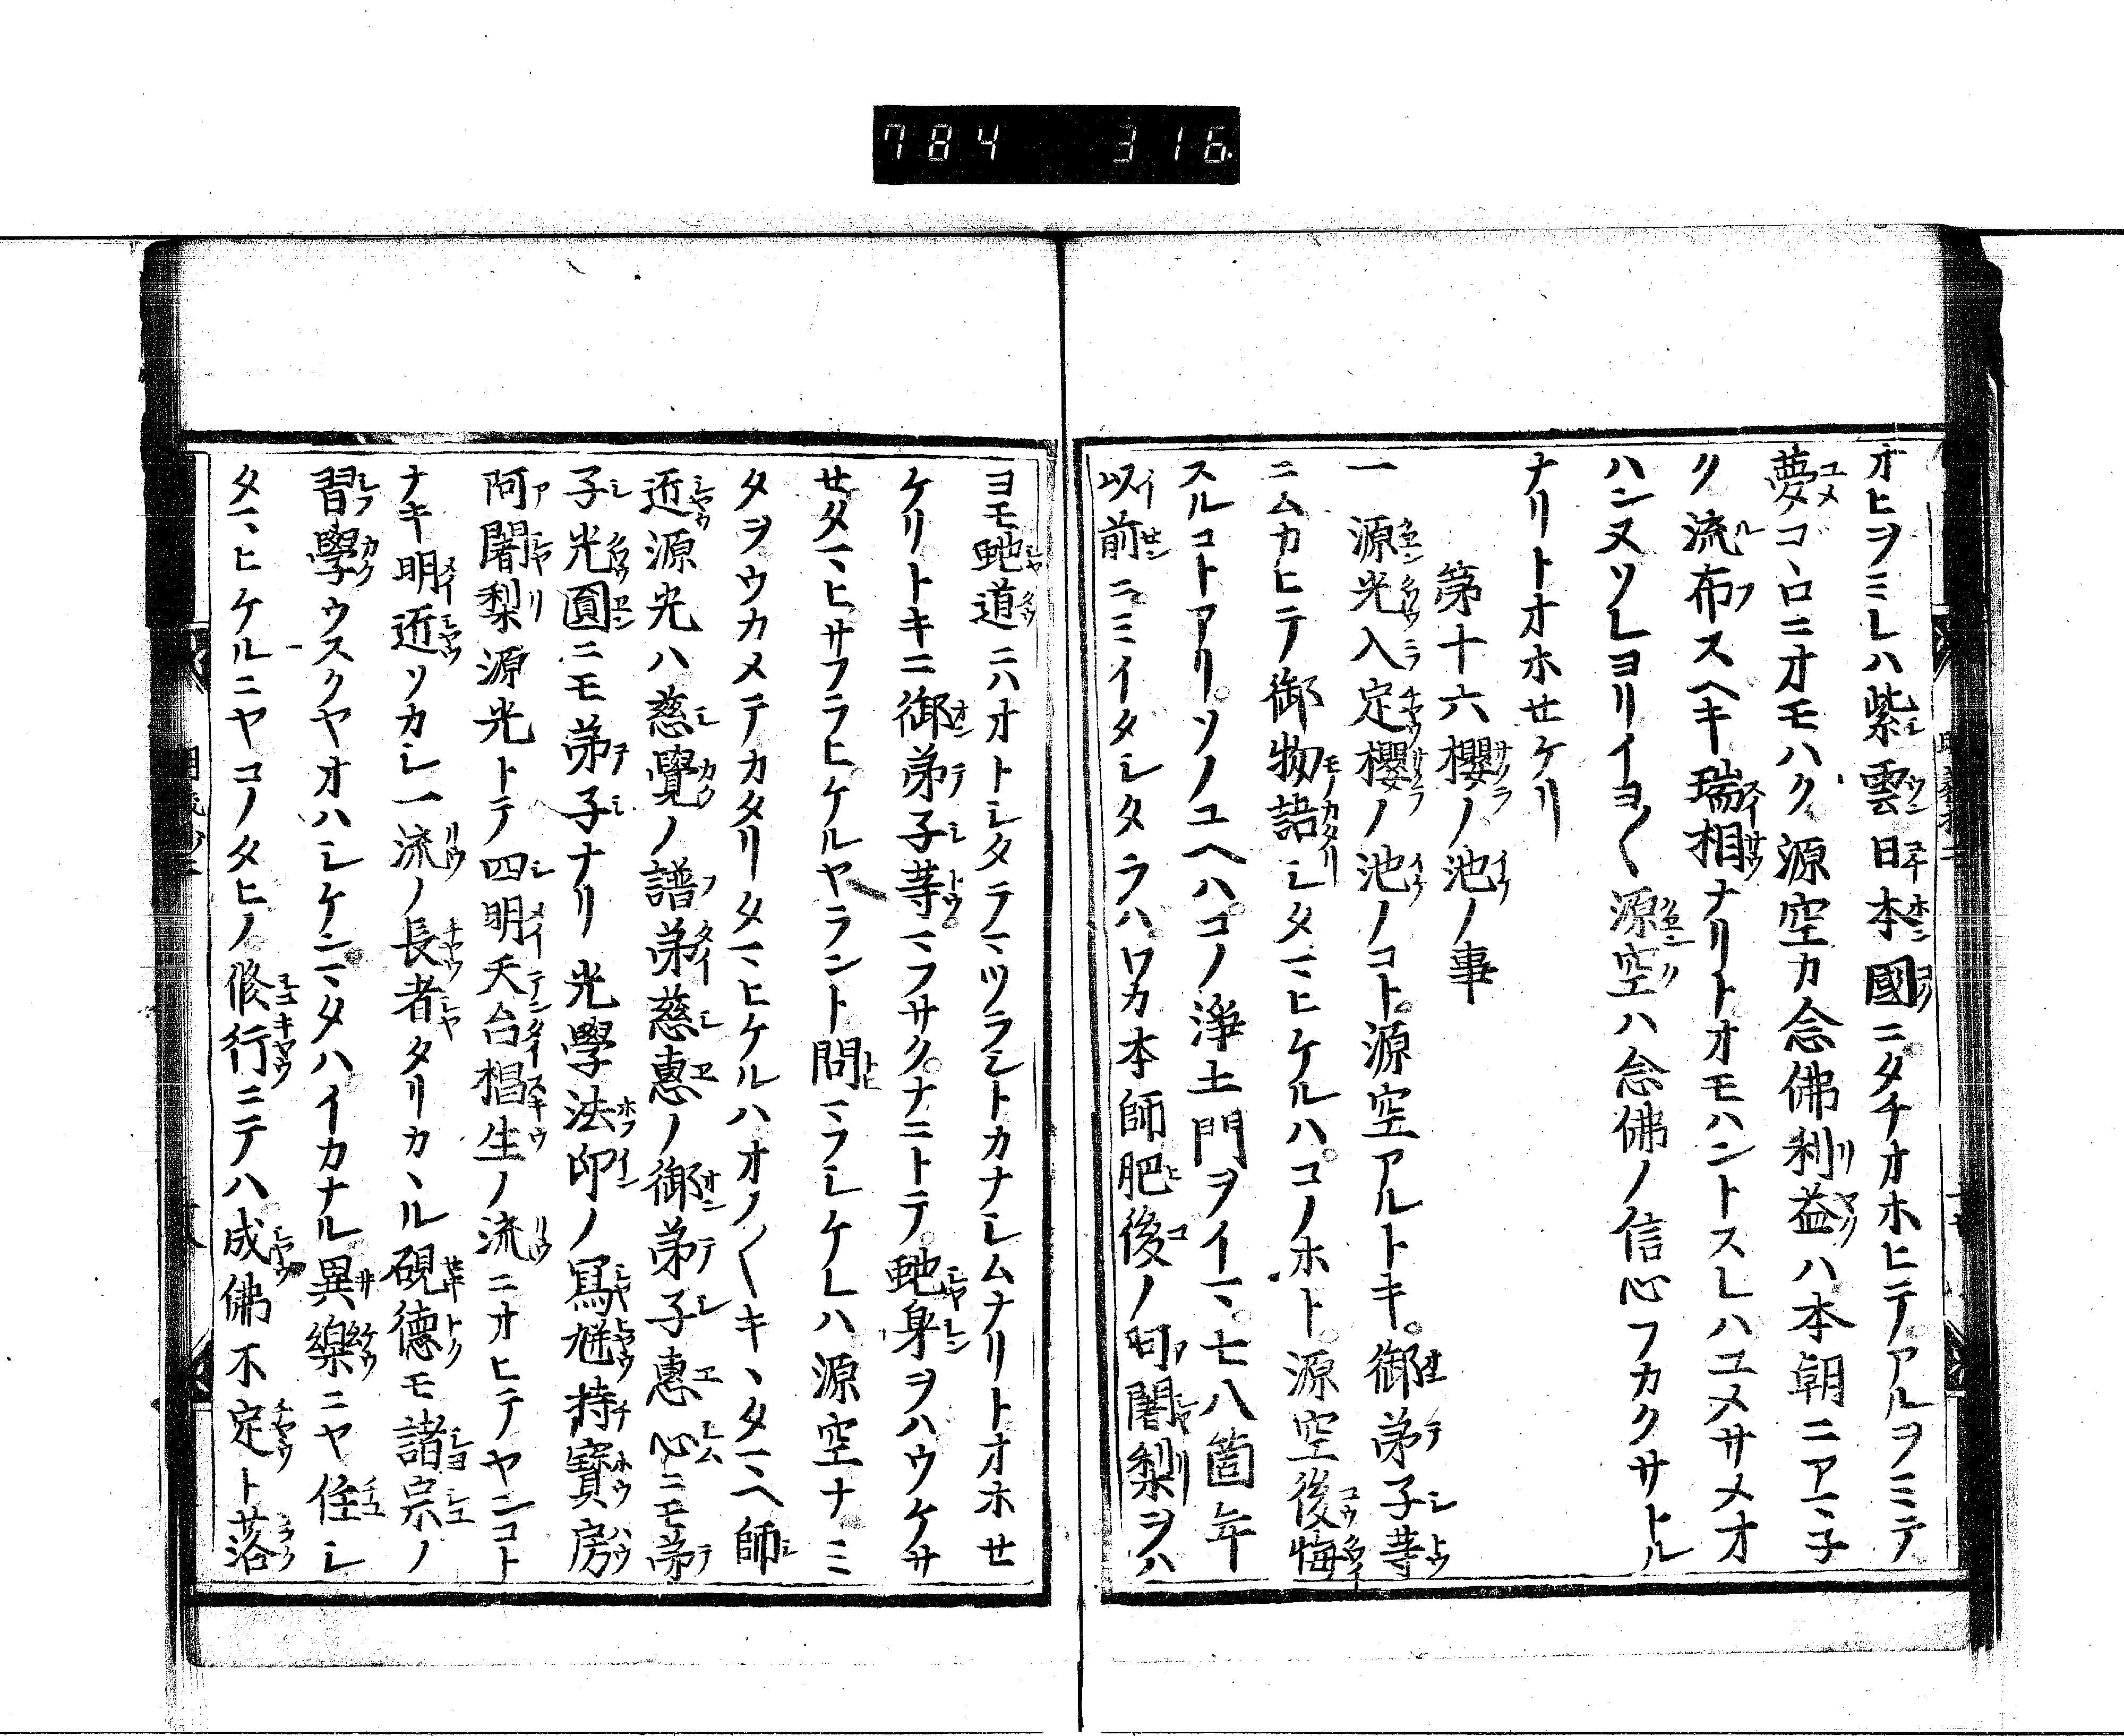 784 316
オヒヲミレハ紫雲日本國ニタチオホヒテ。アルヲミテ
夢コヽロニオモハク。源空カ念佛利益ハ本朝ニアマ子
ク流布スヘキ瑞相ナリトオモハントスレハユメサメオ
ハンヌソレヨリイヨ〱源空ハ念佛ノ信心フカクサトル
ナリトオホセケリ
第十六櫻ノ池ノ事
一源光入定櫻ノ池ノコト。源空アルトキ。御弟子等
ニムカヒテ御物語シタマヒケルハ。コノホト。源空後悔
スルコトアリ。ソノユヘハ。コノ淨土門ヲイマ。七八箇年
以前ニミイタシタラハ。ワカ本師肥後ノ阿闍梨ヲハ
ヨモ虵道ニハオトシタテマツラシトカナシムナリトオホセ
ケリ。トキニ御弟子等。マフサク。ナニトテ。虵身ヲハウケサ
セタマヒ。サフラヒケルヤラント問マフシケレハ源空ナミ
タヲウカメテカタリタマヒケルハオノ〱キヽタマヘ師
近源光ハ慈覺ノ譜弟慈惠ノ御弟子惠心ニモ弟
子光圓ニモ弟子ナリ光學法印ノ寫缾持寶房
阿闍梨源光トテ四明天台椙生ノ流ニオヒテヤンコト
ナキ明近ソカシ一流ノ長者タリカヽル碩德モ諸宗ノ
習學ウスクヤオハシケン。マタハイカナル異樂ニヤ住シ
タマヒケルニヤコノタヒノ。修行ニテハ。成佛不定ト落